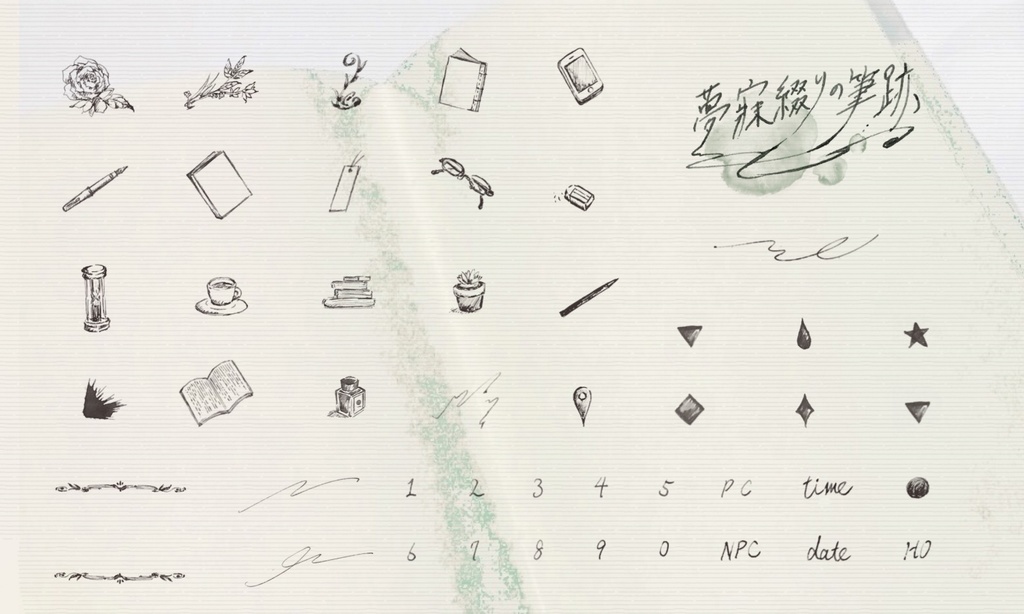 夢寐綴りの筆跡
1 2 3 4 5 PC time
6 7 8 9 0 NPC date HO